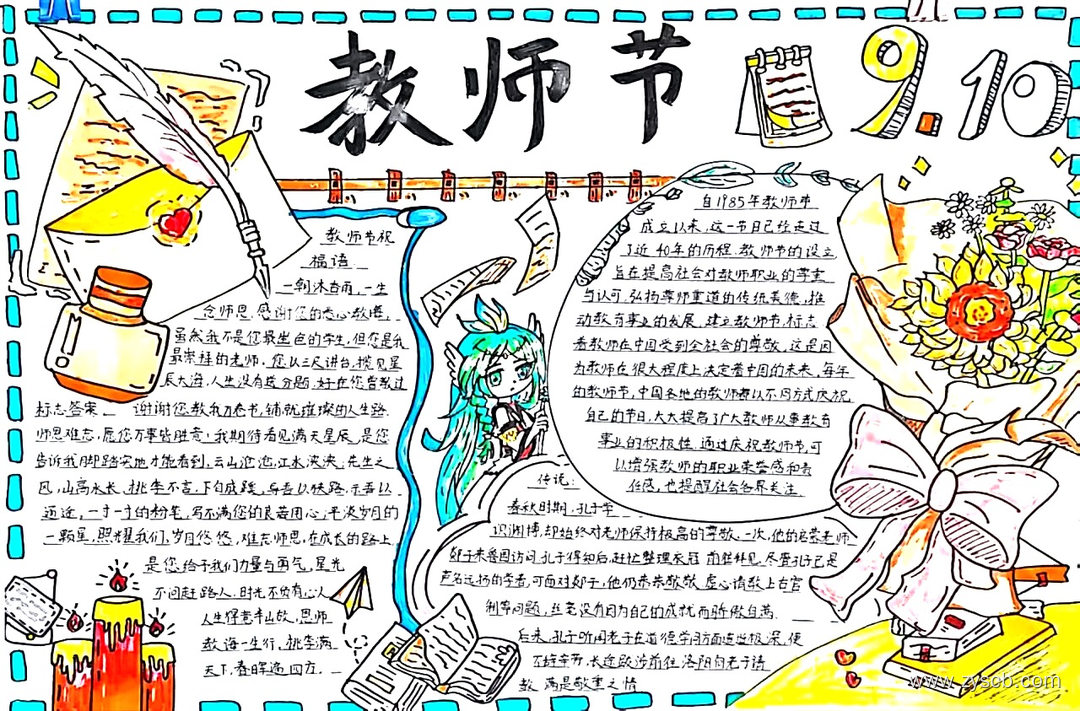 教师节
9.10
教师节祝
福语:
一朝沐杏雨,一生
念师恩,感谢您的悉心教导,
虽然我不是您最出色的学生,但您是我
最崇拜的老师,您以三尺讲台,揽见星
辰大海,人生没有选分题,好在您曾教过
标志答案 谢谢您教我万卷书,铺就璀璨的人生路
师恩难忘,愿您万事皆胜意!我期待看见满天星辰,是您
告诉我脚踏实地才能看到,云山沧沧,江水泱泱,先生之
风,山高水长,桃李不言,下自成蹊,与吾以铁路,示吾以
迢途,一寸一寸的粉笔,写不满您的良苦用心,平淡岁月的
一颗星,照耀我们,岁月悠悠,难忘师恩,在成长的路上
是您给予我们力量与勇气,星光
不问赶路人,时光不负有心人
人生得意丰山故,恩师
教诲一生行,桃李满
天下,春晖遍四方.
自1985年教师节
成立以来,这一节日已经走过
了近40年的历程,教师节的设立
旨在提高社会对教师职业的尊重
与认可,弘扬尊师重道的传统美德,推
动教育事业的发展,建立教师节,标志
着教师在中国受到全社会的尊敬,这是因
为教师在很大程度上决定着中国的未来,每年
的教师节,中国各地的教师都以不同方式庆祝
自己的节日,大大提高了广大教师从事教育
事业的积极性,通过庆祝教师节,可
以增强教师的职业荣誉感和责
任感,也提醒社会各界关注
传说:
春秋时期,孔子学
识渊博,却始终对老师保持极高的尊敬,一次,他的启蒙老师
郯子来鲁国访问,孔子得知后,赶忙整理衣冠 前往拜见,尽管孔子已是
声名远扬的学者,可面对郯子,他仍恭恭敬敬 虚心请教上古官
制等问题,丝毫没有因为自己的成就而骄傲自满.
后来,孔子听闻老子在道德学问方面造诣极深,便
不辞辛劳,长途跋涉前往洛阳向老子请
教,满是敬重之情
www.zysob.com